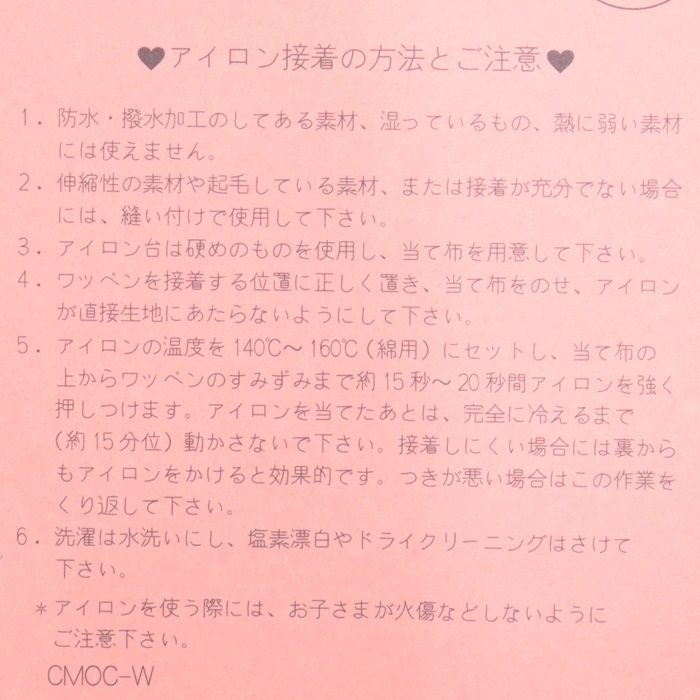 ♥アイロン接着の方法とご注意♥
1. 防水・撥水加工のしてある素材、湿っているもの、熱に弱い素材
には使えません。
2. 伸縮性の素材や起毛している素材、または接着が充分でない場合
には、縫い付けで使用して下さい。
3. アイロン台は硬めのものを使用し、当て布を用意して下さい。
4. ワッペンを接着する位置に正しく置き、当て布をのせ、アイロン
が直接生地にあたらないようにして下さい。
5. アイロンの温度を140℃〜160℃(綿用)にセットし、当て布の
上からワッペンのすみずみまで約15秒〜20秒間アイロンを強く
押しつけます。アイロンを当てたあとは、完全に冷えるまで
(約15分位)動かさないで下さい。接着しにくい場合には裏から
もアイロンをかけると効果的です。つきが悪い場合はこの作業を
くり返して下さい。
6. 洗濯は水洗いにし、塩素漂白やドライクリーニングはさけて
下さい。
*アイロンを使う際には、お子さまが火傷などしないように
ご注意下さい。
CMOC-W